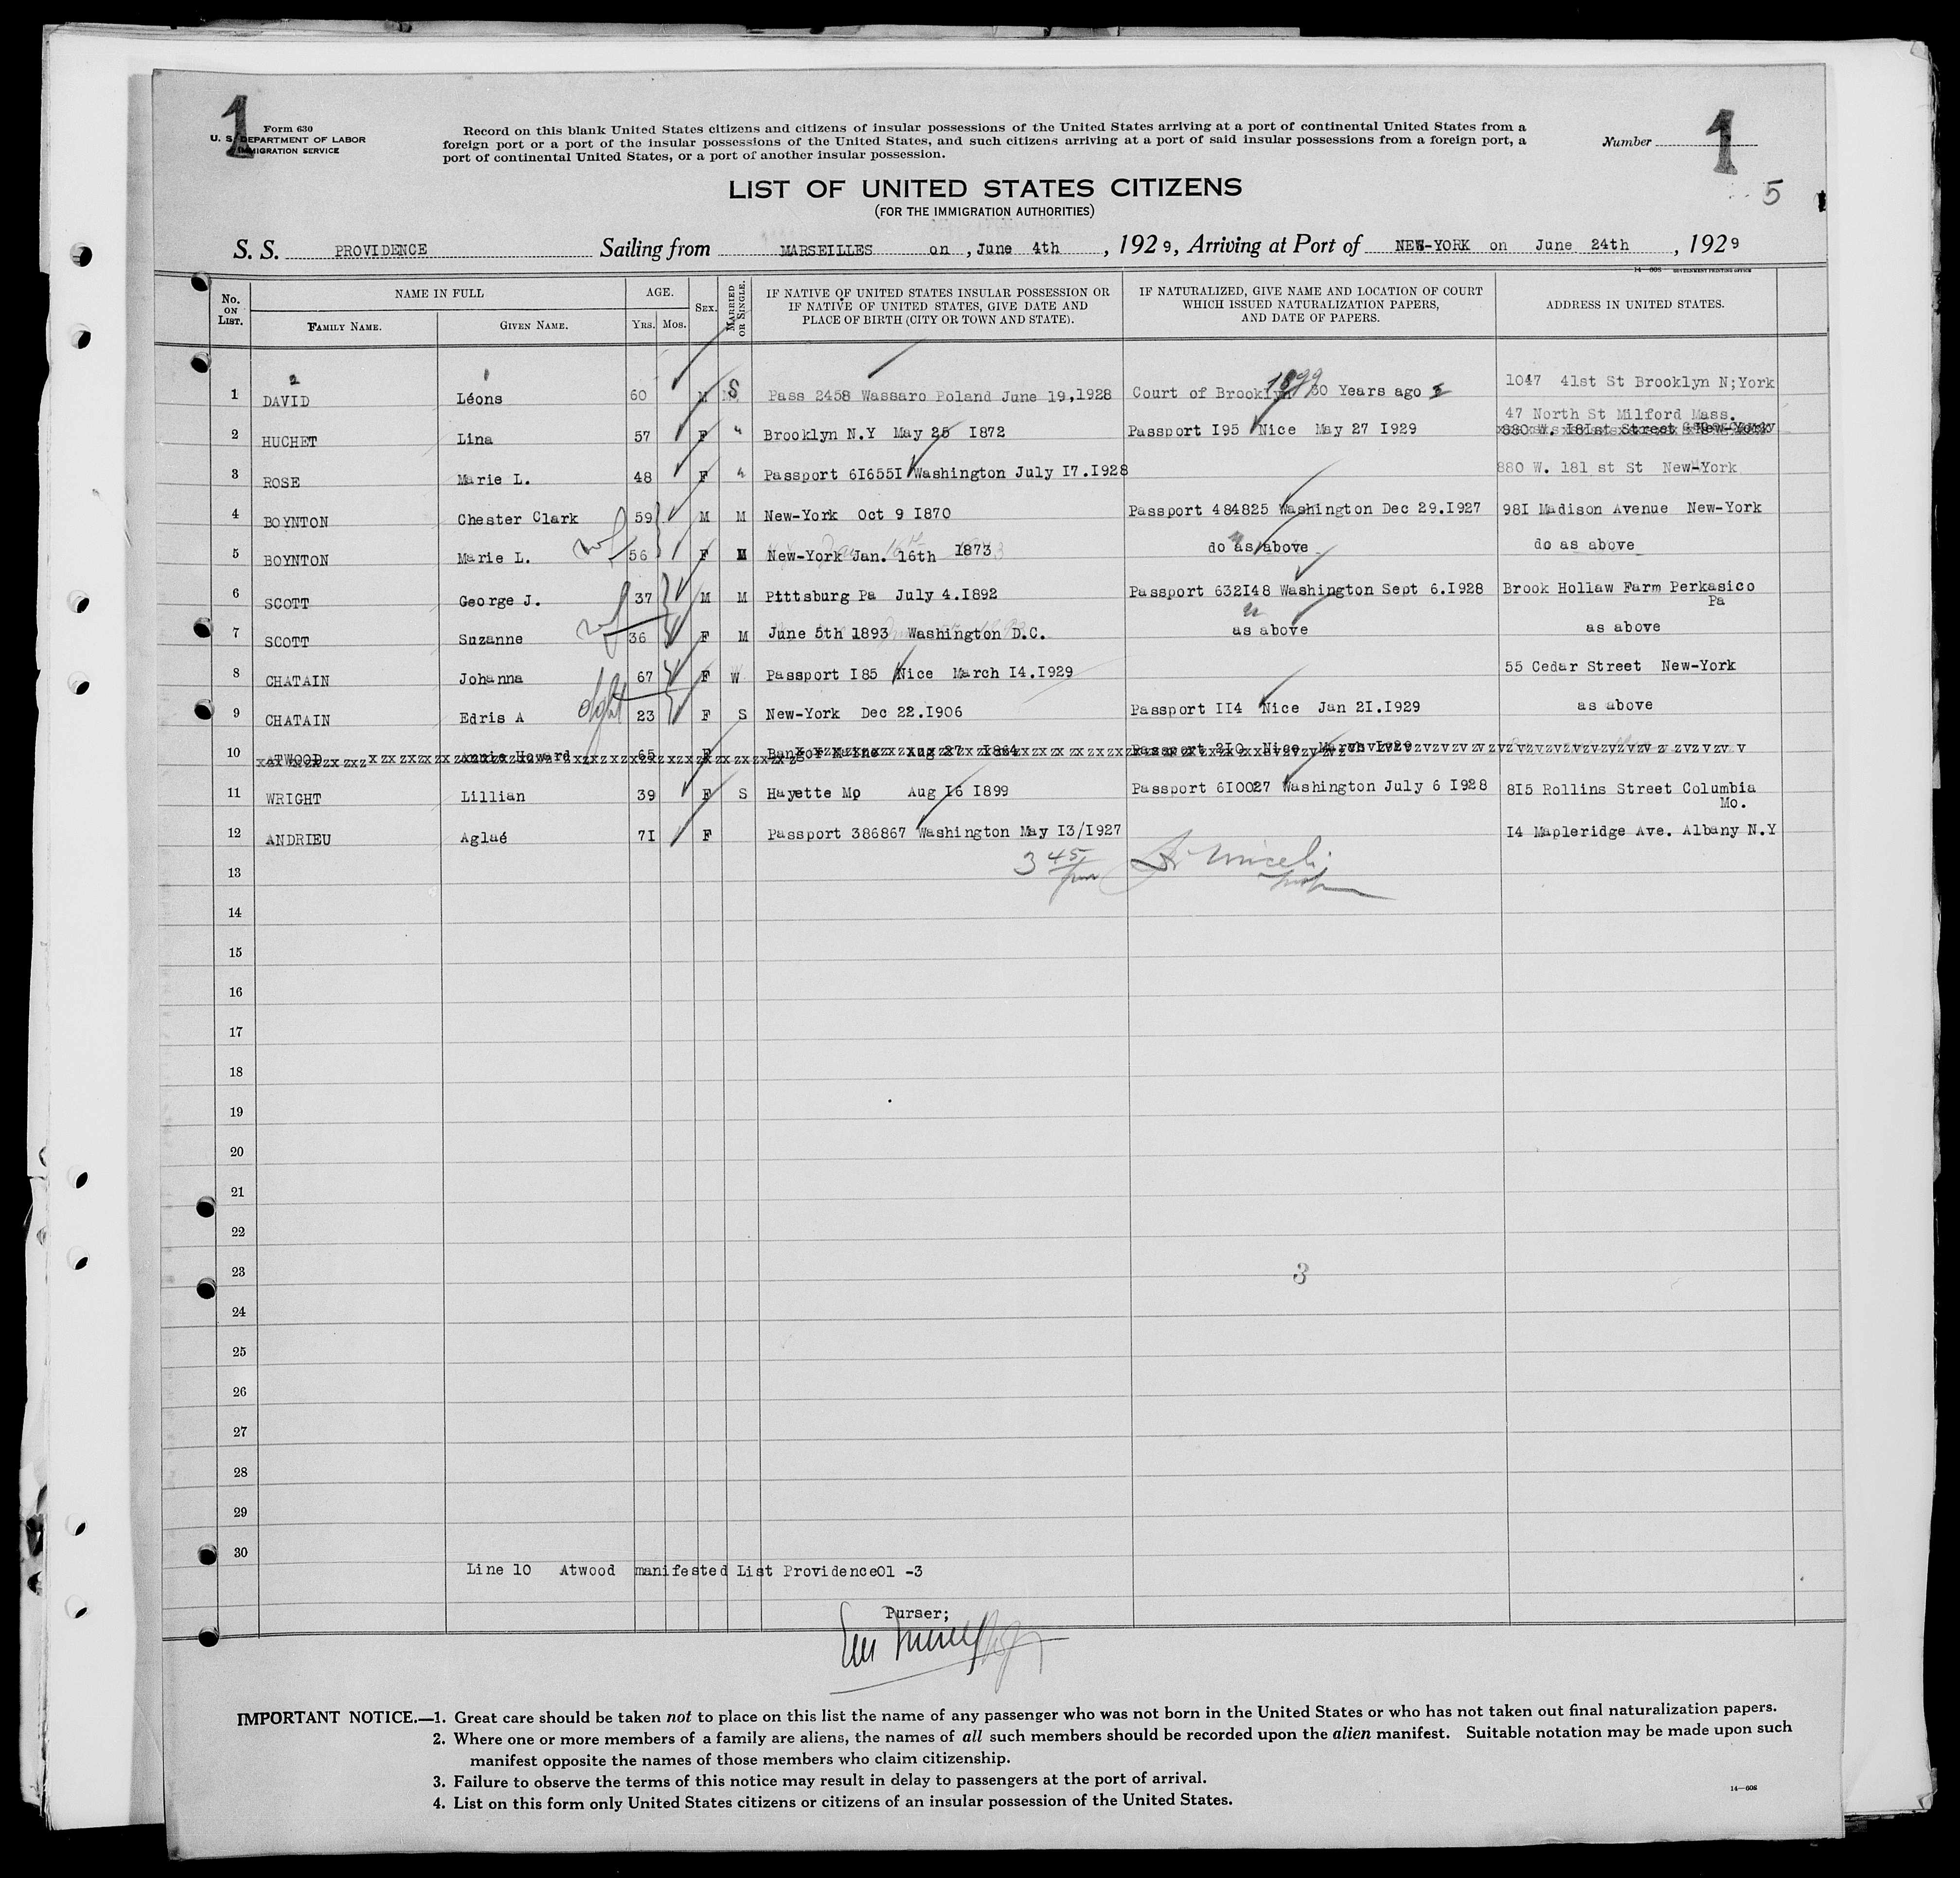 1
Form 630
U. S. DEPARTMENT OF LABOR
IMMIGRATION SERVICE
Record on this blank United States citizens and citizens of insular possessions of the United States arriving at a port of continental United States from a
foreign port or a port of the insular possessions of the United States, and such citizens arriving at a port of said insular possessions from a foreign port, a
port of continental United States, or a port of another insular possession.
Number 1
5
LIST OF UNITED STATES CITIZENS
(FOR THE IMMIGRATION AUTHORITIES)
S. S. PROVIDENCE Sailing from MARSEILLES on , June 4th , 1929, Arriving at Port of NEW-YORK on June 24th , 1929
14—608 GOVERNMENT PRINTING OFFICE
No. ON LIST. NAME IN FULL AGE. SEX. MARRIED OR SINGLE. IF NATIVE OF UNITED STATES INSULAR POSSESSION OR IF NATIVE OF UNITED STATES, GIVE DATE AND PLACE OF BIRTH (CITY OR TOWN AND STATE). IF NATURALIZED, GIVE NAME AND LOCATION OF COURT WHICH ISSUED NATURALIZATION PAPERS, AND DATE OF PAPERS. ADDRESS IN UNITED STATES.
FAMILY NAME. GIVEN NAME. YRS. MOS.
2 1
1 DAVID Léons 60 M S Pass 2458 Wassaro Poland June 19,1928 Court of Brooklyn 1899 30 Years ago 1047 41st St Brooklyn N;York
47 North St Milford Mass.
2 HUCHET Lina 57 F " Brooklyn N.Y May 25 I872 Passport I95 Nice May 27 I929 880 W. I8Ist Street New-York
3 ROSE Marie L. 48 F " Passport 6I655I Washington July I7.I928 880 W. 181 st St New-York
4 BOYNTON Chester Clark 59 M M New-York Oct 9 I870 Passport 484825 Washington Dec 29.I927 98I Madison Avenue New-York
5 BOYNTON Marie L. 56 F M New-York Jan. 16th 1873 do as above do as above
6 SCOTT George J. 37 M M Pittsburg Pa July 4.I892 Passport 632I48 Washington Sept 6.I928 Brook Hollaw Farm Perkasico
Pa
7 SCOTT Suzanne 36 F M June 5th 1893 Washington D.C. as above as above
8 CHATAIN Johanna 67 F W Passport I85 Nice March I4.I929 55 Cedar Street New-York
9 CHATAIN Edris A 23 F S New-York Dec 22.I906 Passport II4 Nice Jan 2I.I929 as above
10 ATWOOD Annie Howard 65 F Bangor Maine Aug 27 I864 Passport 2I0 Nice March I929
11 WRIGHT Lillian 39 F S Hayette Mo Aug I6 I899 Passport 6I0027 Washington July 6 I928 8I5 Rollins Street Columbia
Mo.
12 ANDRIEU Aglaé 7I F Passport 386867 Washington May I3/I927 I4 Mapleridge Ave. Albany N.Y
3 45
13
14
15
16
17
18
19
20
21
22
23 3
24
25
26
27
28
29
30
Line 10 Atwood manifested List Providence01 -3
Purser;
IMPORTANT NOTICE.—1. Great care should be taken not to place on this list the name of any passenger who was not born in the United States or who has not taken out final naturalization papers.
2. Where one or more members of a family are aliens, the names of all such members should be recorded upon the alien manifest. Suitable notation may be made upon such
manifest opposite the names of those members who claim citizenship.
3. Failure to observe the terms of this notice may result in delay to passengers at the port of arrival.
4. List on this form only United States citizens or citizens of an insular possession of the United States.
14—608